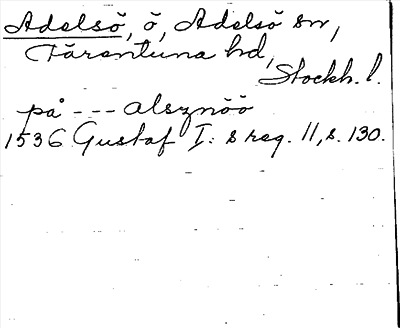 Adelsö, ö, Adelsö sn,
Färentuna hd,
Stockh. l.
på --- alsznöö
1536 Gustaf I: s reg. 11, s. 130.